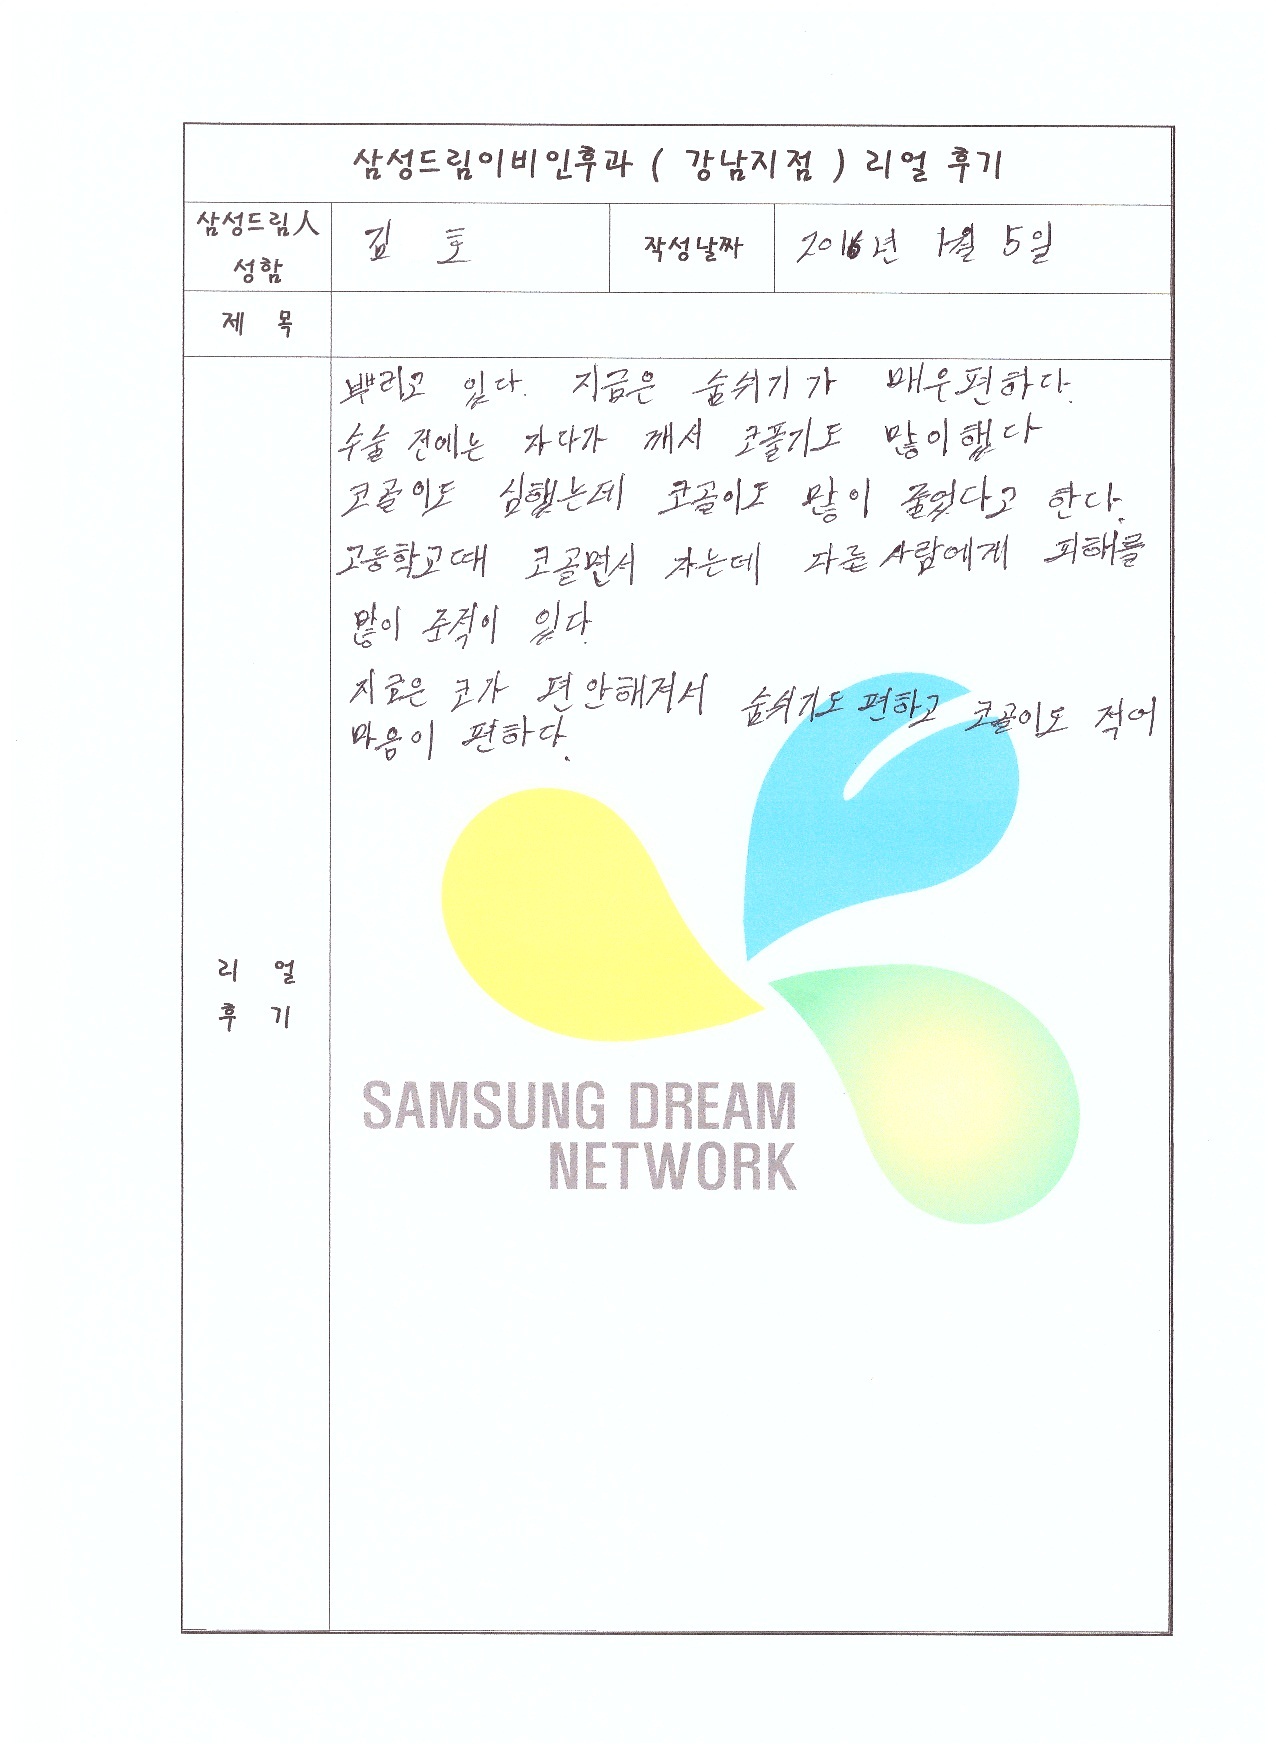 삼성드림이비인후과 ( 강남지점 ) 리얼 후기
삼성드림人 성함
김 호
작성날짜
2016년 1월 5일
제 목
뿌리고 있다. 지금은 숨쉬기가 매우편하다.
수술 전에는 자다가 깨서 코풀기도 많이했다
코골이도 심했는데 코골이도 많이 줄었다고 한다.
고등학교때 코골면서 자는데 다른 사람에게 피해를
많이 준적이 있다.
지금은 코가 편안해져서 숨쉬기도 편하고 코골이도 적어
마음이 편하다.
리 얼
후 기
SAMSUNG DREAM
NETWORK